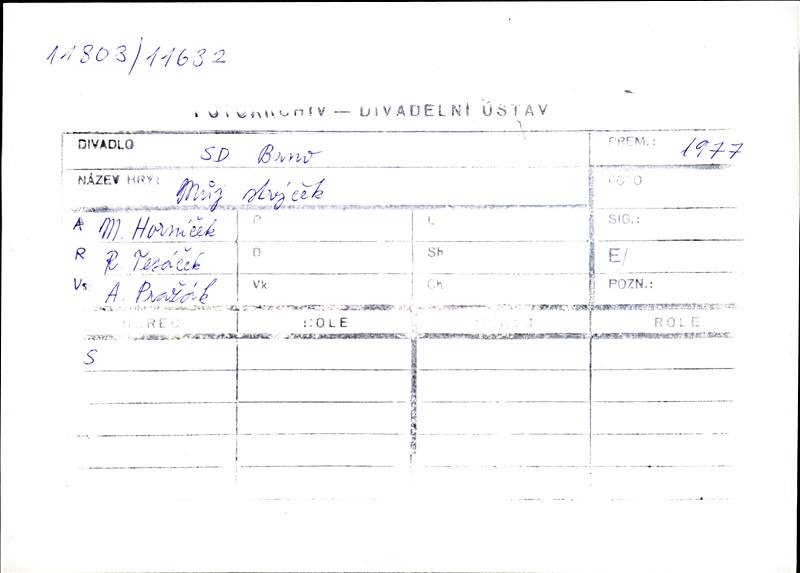 11803/11632
FOTOARCHIV — DIVADELNÍ ÚSTAV
DIVADLO SD Brno PREM.: 1977
NÁZEV HRY: Můj strýček FOTO
A M. Horníček P L SIG.:
R R. Tesáček D Sh E/
Vs A. Pražák Vk Ch POZN.:
HEREC ROLE HEREC ROLE
S